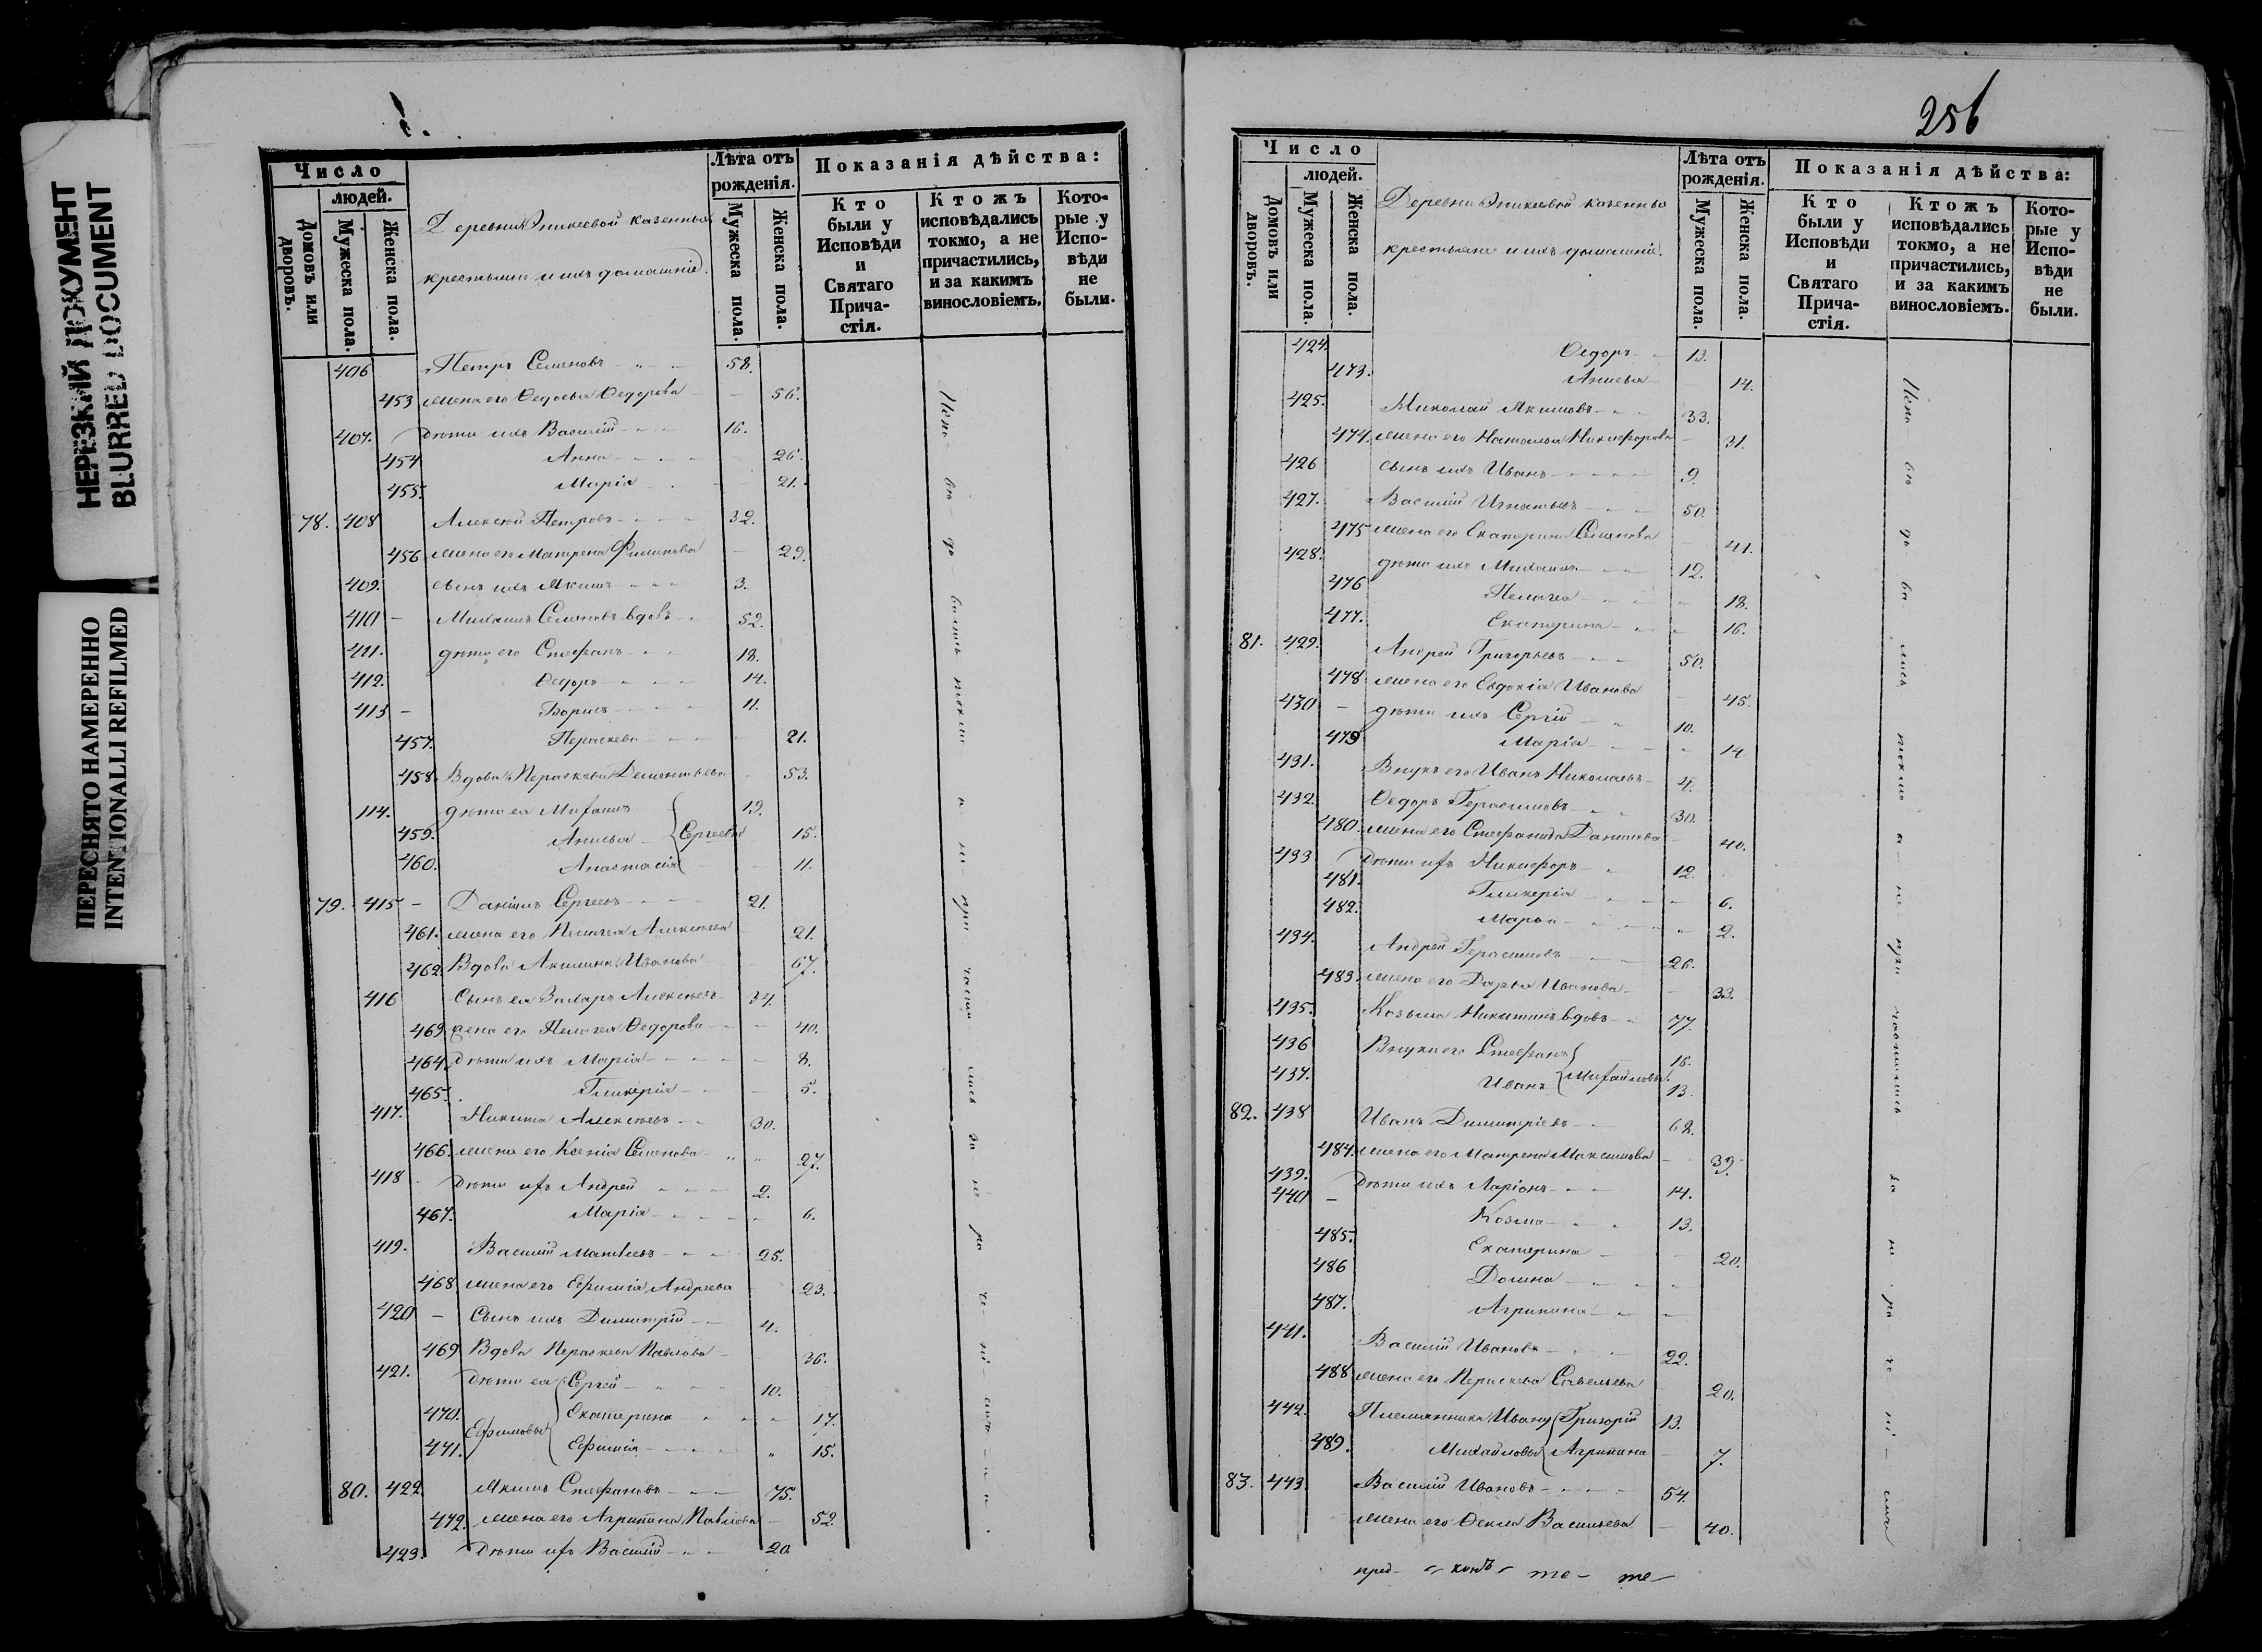 НЕРЕЗКИЙ ДОКУМЕНТ
BLURRED DOCUMENT
ПЕРЕСНЯТО НАМЕРЕННО
INTENTIONALLI REFILMED
Число
людей.
Домовъ или дворовъ.
Мужеска пола.
Женска пола.
Деревни Эникеевой казенные
крестьяне и ихъ домашніе.
Лѣта отъ рожденія.
Мужеска пола.
Женска пола.
Показанія дѣйства:
Кто были у Исповѣди и Святаго Прича-стія.
Ктожъ исповѣдались токмо, а не причастились, и за какимъ винословіемъ.
Кото-рые у Испо-вѣди не были.
406 Петръ Семеновъ 58.
453 жена его Федосья Федорова 56.
407. Дѣти ихъ Василій 16.
454 Анна 26.
455. Марія 21.
78. 408 Алексѣй Петровъ 32.
456 жена его Матрена Филипова 29.
409. сынъ ихъ Якимъ 3.
410 Михаилъ Семеновъ вдовъ 52.
411. дѣти его Стефанъ 18.
412. Ѳедоръ 14.
413 Борисъ 11.
457. Пераскева 21.
458. Вдова Пераскева Дементьева 53.
114. дѣти ея Михаилъ 19.
459. Анисья Сергеевы 15.
460. Анастасія 11.
79. 415 Даніилъ Сергеевъ 21.
461. жена его Пелагея Алексѣева 21.
462 Вдова Акилина Иванова 67.
416 Сынъ ея Захаръ Алексѣевъ 34.
469 жена его Пелагея Ѳедорова 40.
464 Дѣти ихъ Марія 8.
465. Гликерія 5.
417. Никита Алексѣевъ 30.
466. жена его Ксенія Семенова 27.
418 Дѣти ихъ Андрей 2.
467. Марія 6.
419. Василій Матвѣевъ 25.
468 жена его Ефимія Андреева 23.
420 Сынъ ихъ Димитрій 4.
469 Вдова Пераскева Павлова 36.
421. Дѣти ея Сергей 10.
470. Екатерина 17.
Ефимовы
471. Ефимія 15.
80. 422 Якимъ Стефановъ 75.
472. жена его Агрипина Павлова 52.
423. Дѣти ихъ Василій 20
Испо вѣ до вались токмо а не при части лись за не ра че ні емъ
256
Число
людей.
Домовъ или дворовъ.
Мужеска пола.
Женска пола.
Деревни Эникеевой казенные
крестьяне и ихъ домашніе.
Лѣта отъ рожденія.
Мужеска пола.
Женска пола.
Показанія дѣйства:
Кто были у Исповѣди и Святаго Прича-стія.
Ктожъ исповѣдались токмо, а не причастились, и за какимъ винословіемъ.
Кото-рые у Испо-вѣди не были.
424. Ѳедоръ 13.
473. Анисья 14.
425. Николай Якимовъ 33.
474. жена его Наталья Никифорова 31.
426 сынъ ихъ Иванъ 9.
427. Василій Игнатьевъ 50.
475 жена его Екатерина Семенова 41.
428. дѣти ихъ Михаилъ 12.
476 Пелагея 18.
477. Екатерина 16.
81. 429. Андрей Григорьевъ 50.
478 жена его Евдокія Иванова 45.
430 дѣти ихъ Сергій 10.
479 Марія 14
431. Внукъ его Иванъ Николаевъ 4.
432. Ѳедоръ Герасимовъ 30.
480. жена его Стефанида Данилова 40.
433 Дѣти ихъ Никифоръ 12.
481. Гликерія 6.
482. Марья 2.
434. Андрей Герасимовъ 26.
483. жена его Дарья Иванова 33.
435. Козьма Никитинъ вдовъ 77.
436 Внуки его Стефанъ 16.
437. Иванъ Михайловы. 13.
82. 438 Иванъ Димитріевъ 62.
484. жена его Матрена Максимова 39.
439. Дѣти ихъ Ларіонъ 14.
440 Козма 13.
485. Екатерина 20.
486 Домна
487. Агрипина
441. Василій Ивановъ 22.
488 жена его Пераскева Савельева 20.
442. Племянники Ивану Григорій 13.
489. Михайловы Агрипина 7.
83. 443 Василій Ивановъ 54.
жена его Ѳекла Васильева 40.
Испо вѣ до ва лись токмо а не при частились за не ра че ні емъ